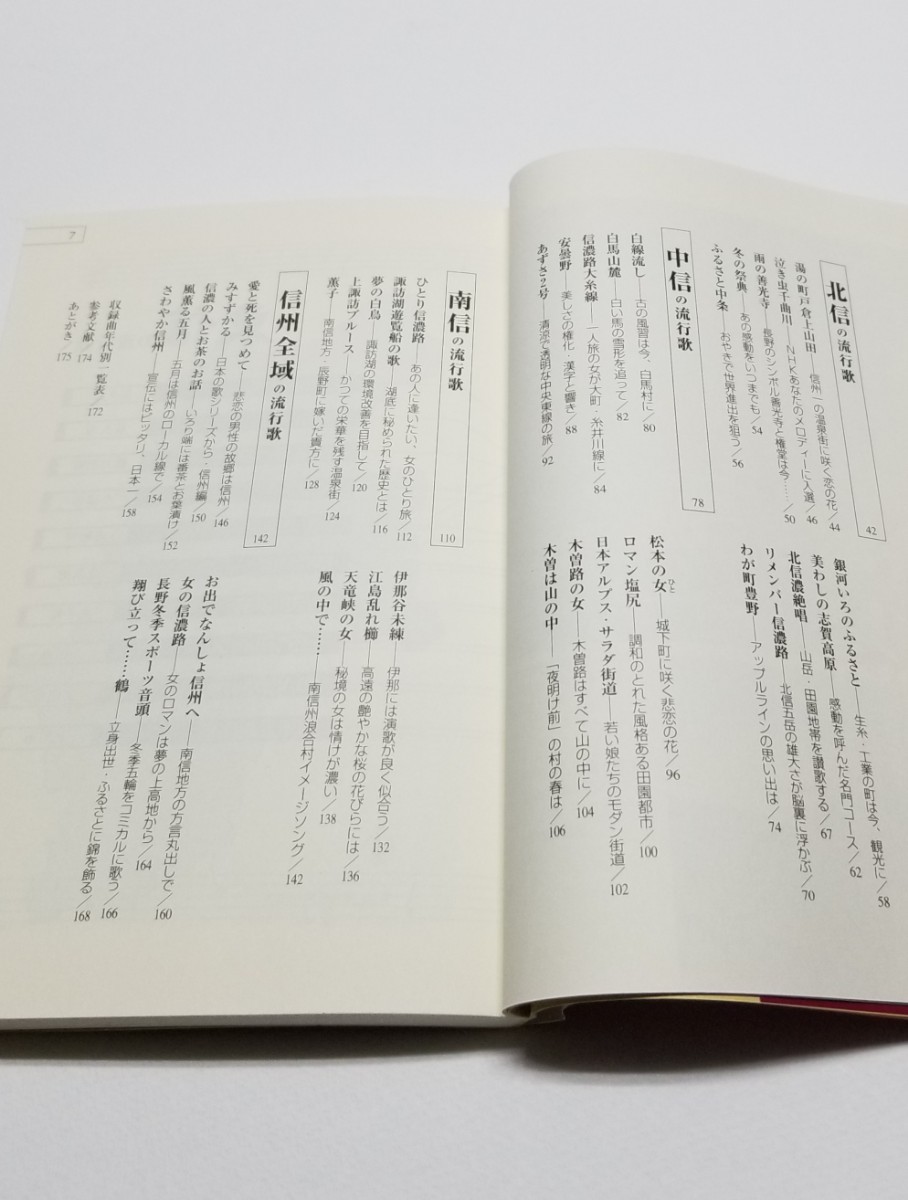 北信の流行歌 42
湯の町戸倉上山田――信州一の温泉街に咲く恋の花／44
泣き虫千曲川――NHKあなたのメロディーに入選／46
雨の善光寺――長野のシンボル善光寺と権堂は今……／50
冬の祭典――あの感動をいつまでも／54
ふるさと中条――おやきで世界進出を狙う／56
銀河いろのふるさと――生糸・工業の町は今、観光に／58
美わしの志賀高原――感動を呼んだ名門コース／62
北信濃絶唱――山岳・田園地帯を讃歌する／67
リメンバー信濃路――北信五岳の雄大さが脳裏に浮かぶ／70
わが町豊野――アップルラインの思い出は／74
中信の流行歌 78
白線流し――古の風習は今、白馬村に／80
白馬山麓――白い馬の雪形を追って／82
信濃路大糸線――一人旅の女が大町・糸井川線に／84
安曇野――美しさの権化・漢字と響き／88
あずさ2号――清涼で透明な中央東線の旅／92
松本の女――城下町に咲く悲恋の花／96
ひと
ロマン塩尻――調和のとれた風格ある田園都市／100
日本アルプス・サラダ街道――若い娘たちのモダン街道／102
木曽路の女――木曽路はすべて山の中に／104
木曽は山の中――「夜明け前」の村の春は／106
南信の流行歌 110
ひとり信濃路――あの人に逢いたい、女のひとり旅／112
諏訪湖遊覧船の歌――湖底に秘められた歴史とは／116
夢の白鳥――諏訪湖の環境改善を目指して／120
上諏訪ブルース――かつての栄華を残す温泉街／124
薫子――南信地方・辰野町に嫁いだ貴方に／128
伊那谷未練――伊那には演歌が良く似合う／132
江島乱れ櫛――高遠の艶やかな桜の花びらには／136
天竜峡の女――秘境の女は情けが濃い／138
風の中で……――南信州浪合村イメージソング／142
信州全域の流行歌 142
愛と死を見つめて――悲恋の男性の故郷は信州／146
みすずかる――日本の歌シリーズから・信州編／150
信濃の人とお茶のお話――いろり端には番茶とお葉漬け／152
風薫る五月――五月は信州のローカル線で／154
さわやか信州――宣伝にはピッタリ、日本一／158
お出でなんしょ信州へ――南信地方の方言丸出しで／160
女の信濃路――女のロマンは夢の上高地から／164
長野冬季スポーツ音頭――冬季五輪をコミカルに歌う／166
翔び立って……鶴――立身出世・ふるさとに錦を飾る／168
収録曲年代別一覧表／172
参考文献／174
あとがき／175
7